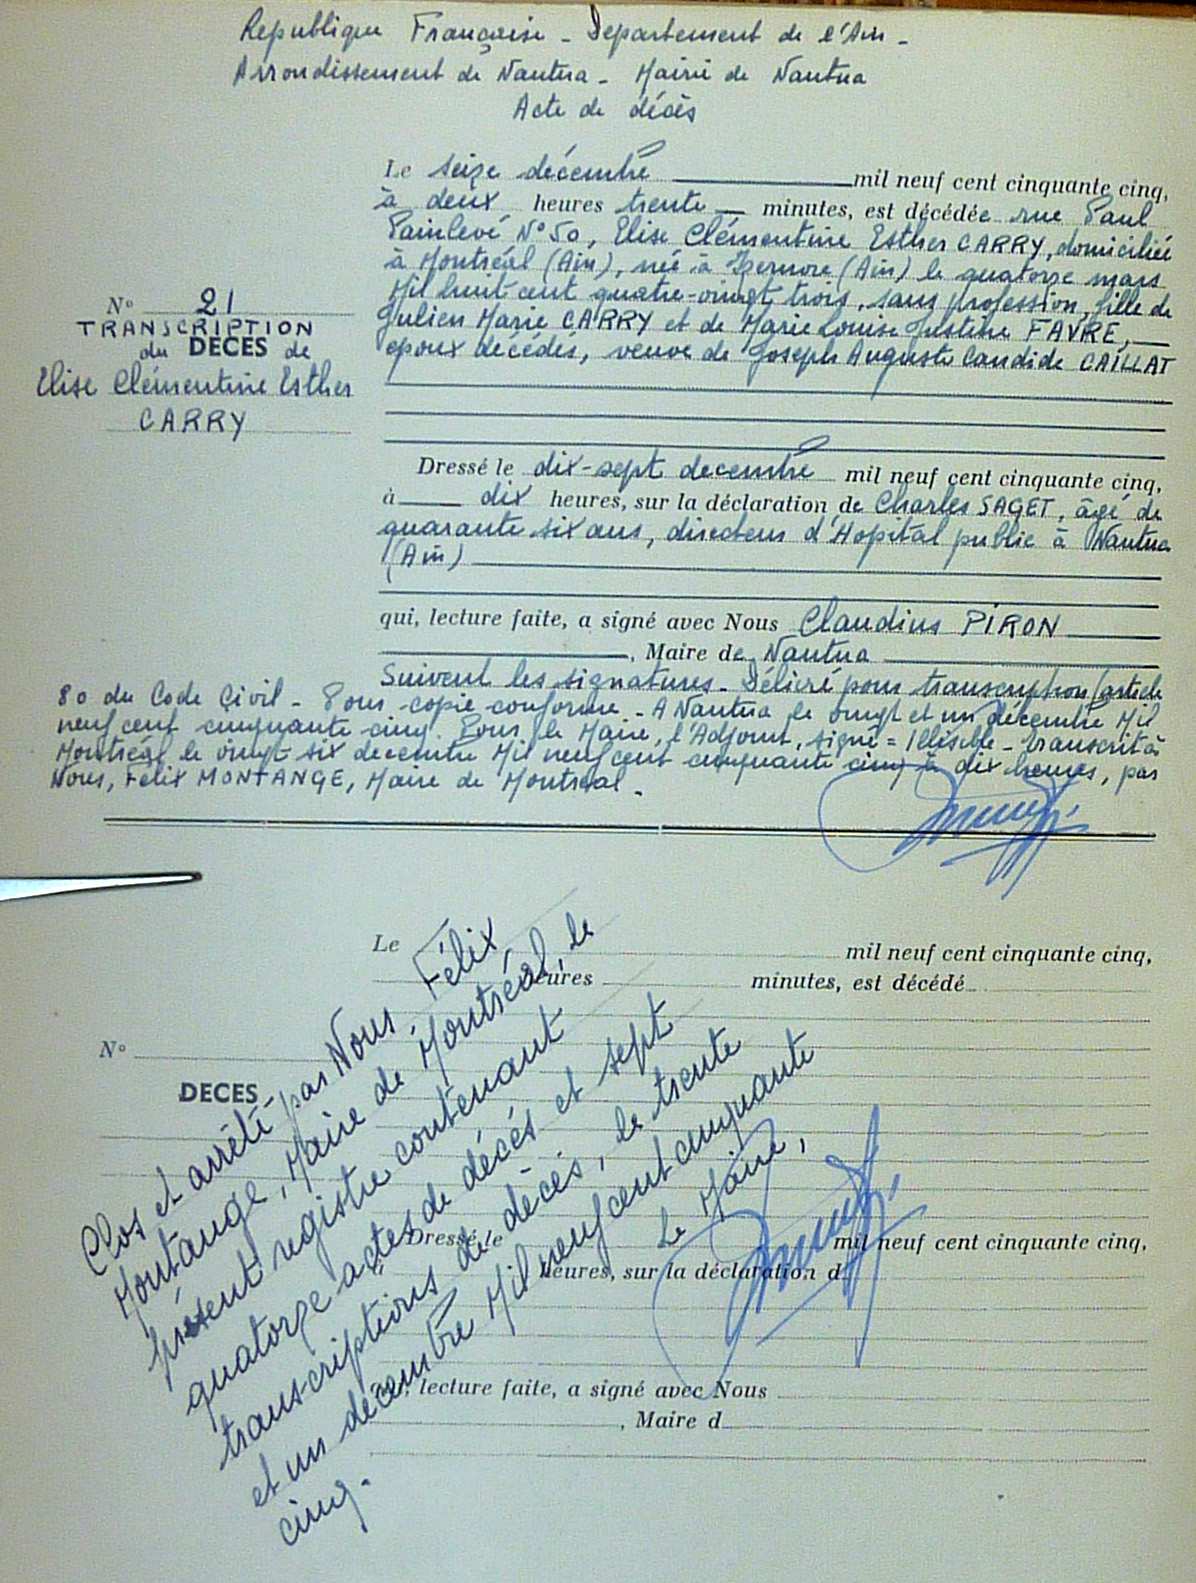 Republique Française - Departement de l'Ain -
Arrondissement de Nantua - Mairie de Nantua
Acte de décès
Le seize décembre mil neuf cent cinquante cinq,
à deux heures trente minutes, est décédée rue Paul
Painlevé N° 50, Elise Clémentine Esther CARRY, domiciliée
à Montréal (Ain), née à Izernore (Ain) le quatorze mars
Mil huit cent quatre-vingt trois, sans profession, fille de
Julien Marie CARRY et de Marie Louise Justine FAVRE,
epoux décédés, veuve de Joseph Auguste Candide CAILLAT
N° 21
TRANSCRIPTION
du DECES de
Elise Clémentine Esther
CARRY
Dressé le dix-sept decembre mil neuf cent cinquante cinq,
à dix heures, sur la déclaration de Charles SAGET, âgé de
quarante six ans, directeur d'Hopital public à Nantua
(Ain)
qui, lecture faite, a signé avec Nous Claudius PIRON
, Maire de Nantua
Suivent les signatures - Délivré pour transcription (article
80 du Code Civil - Pour copie conforme - A Nantua le vingt et un décembre Mil
neuf cent cinquante cinq. Pour le Maire, l'Adjoint, signé = Illisible - Transcrit à
Montréal le vingt-six decembre Mil neuf cent cinquante cinq à dix heures, par
Nous, Félix MONTANGE, Maire de Montréal -
Le mil neuf cent cinquante cinq,
heures minutes, est décédé
N°
DECES
Dressé le mil neuf cent cinquante cinq,
heures, sur la déclaration d
qui, lecture faite, a signé avec Nous
, Maire d
Clos et arrêté par Nous, Félix
Montange, Maire de Montréal, le
présent registre contenant
quatorze actes de décés et sept
transcriptions de décés, le trente
et un décembre Mil neuf cent cinquante
cinq.
Le Maire,